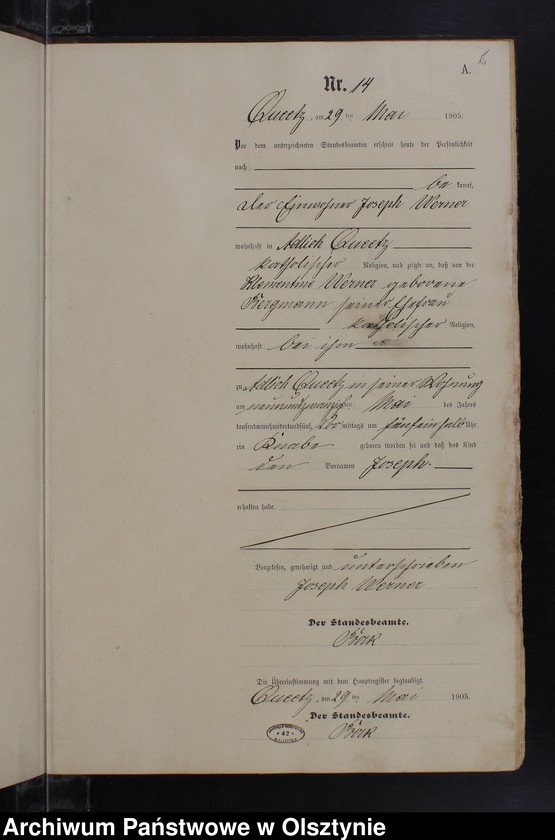 A.
Nr. 14
Queetz, am 29 ten Mai 1905.
Vor dem unterzeichneten Standesbeamten erschien heute der Persönlichkeit
nach
be kannt,
der Einwohner Joseph Werner
wohnhaft in Adlich Queetz
katholischer Religion, und zeigte an, daß von der
Klementine Werner geborene
Bergmann seiner Ehefrau
katholischer Religion,
wohnhaft bei ihm
zu Adlich Queetz in seiner Wohnung
am neunundzwanzigsten Mai des Jahres
tausendneunhundertundfünf, Vor mittags um fünfeinhalb Uhr
ein Knabe geboren worden sei und daß das Kind
den Vornamen Joseph
erhalten habe.
Vorgelesen, genehmigt und unterschrieben
Joseph Werner
Der Standesbeamte.
Die Übereinstimmung mit dem Hauptregister beglaubigt.
Queetz, am 29 ten Mai 1905.
Der Standesbeamte.
42
Archiwum Państwowe w Olsztynie